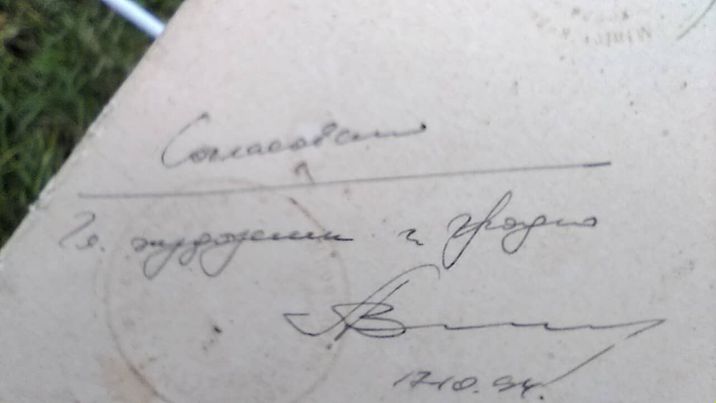 Согласовано
Гл. художник г. Гродно
17.10.94.